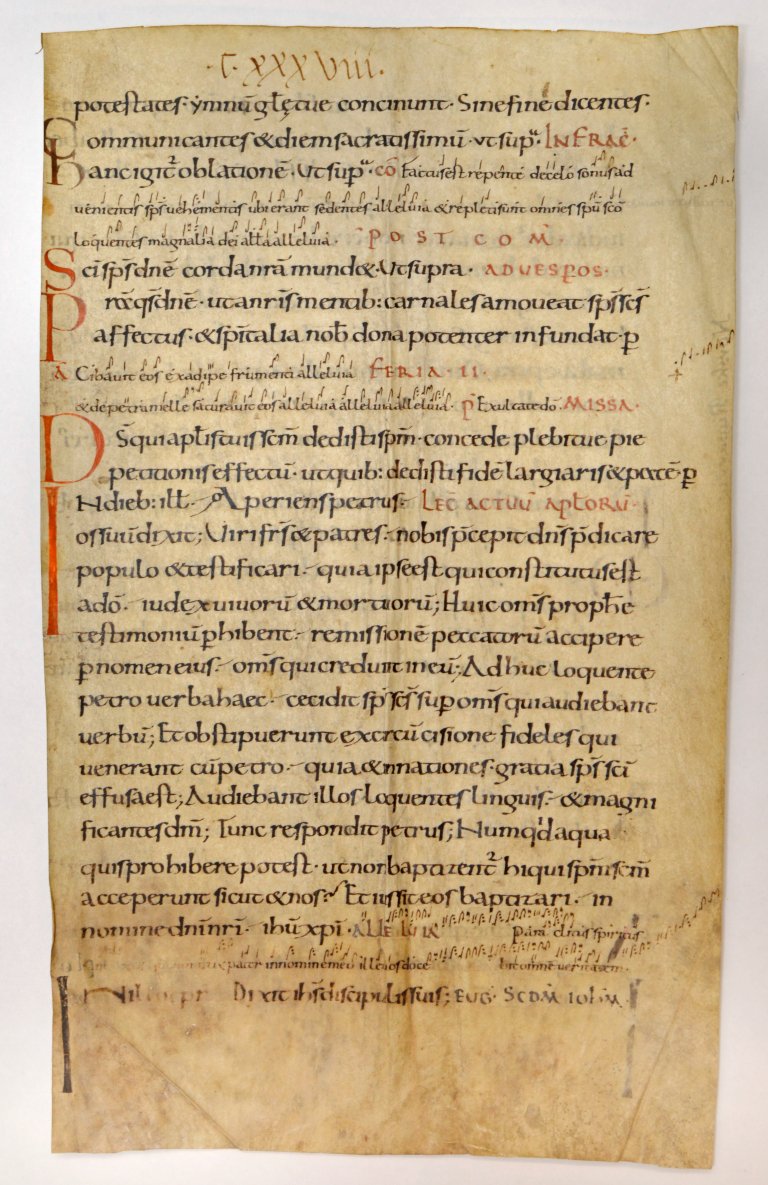 ·C·XXXVIII·
potestates· ẏmnū gl̄ę tuę concinunt· Sine fine dicentes·
Communicantes & diem sacratissimū· ut sup̄· INFRAC̄·
hanc igit̄ oblationē· Ut sup̄· c̄o Factus est repente de celo sonus ad
uenientis sp̄s uehementis ubi erant sedentes alleluia & repleti sunt omnes sp̄u sc̄o
loquentes magnalia dei all̄a alleluia· POST COM̄·
Sc̄i sp̄s dn̄e corda nr̄a mund&· Ut supra· AD UESP̄OS·
Pręs̄ q̄s dn̄e· ut a nr̄is mentib: carnales amoueat sp̄s sc̄s
affectus· & sp̄italia nob̄ dona potenter infundat· p̄
A Cibauit eos ex adipe frumenti alleluia FERIA·II·
& de petra melle saturauit eos alleluia alleluia alleluia· p̄ Exultate dō· MISSA·
DS̄ qui apl̄is tuis sc̄m dedisti sp̄m· concede plebi tuę pię
petitionis effectū· ut quib: dedisti fidē largiaris & pacē· p̄
INdieb: ill̄· Aperiens petrus LEC̄ ACTUŪ APL̄ORŪ·
os suū dixit; Uiri fr̄s & patres· nobis p̄cepit dn̄s p̄dicare
populo & testificari· quia ipse est qui constitutus est
a dō· iudex uiuorū & mortuorū; Huic om̄s proph̄e
testimoniū p̄hibent· remissionē peccatorū accipere
p̄ nomen eius· om̄s qui credunt in eū; Adhuc loquente
petro uerba haec· cecidit sp̄s sc̄s sup̄ om̄s qui audiebant
uerbū; Et obstipuerunt ex circūcisione fideles qui
uenerant cū petro· quia & in nationes gratia sp̄s sc̄i
effusa est; Audiebant illos loquentes linguis· & magni
ficantes dm̄; Tunc respondit petrus; Numq'd aqua
quis prohibere potest· ut non baptizent̄ hi qui sp̄m sc̄m
acceperunt sicut & nos? Et iussit eos baptizari· in
nomine dn̄i nr̄i· ihū xp̄i· ALLELUIA Paraclitus spiritus
pater in nomine meo ille uos docebit omnē ueritatem·
IN ill̄ Dixit ih̄s discipulis suis; EUG̅· SCDM̄ IOHM̄